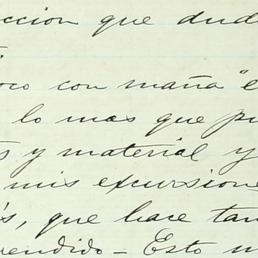 ccion que dud
oco con maña "e
lo mas que pu
s y material y
mis excursione
s, que hace tan
rendido — Esto n